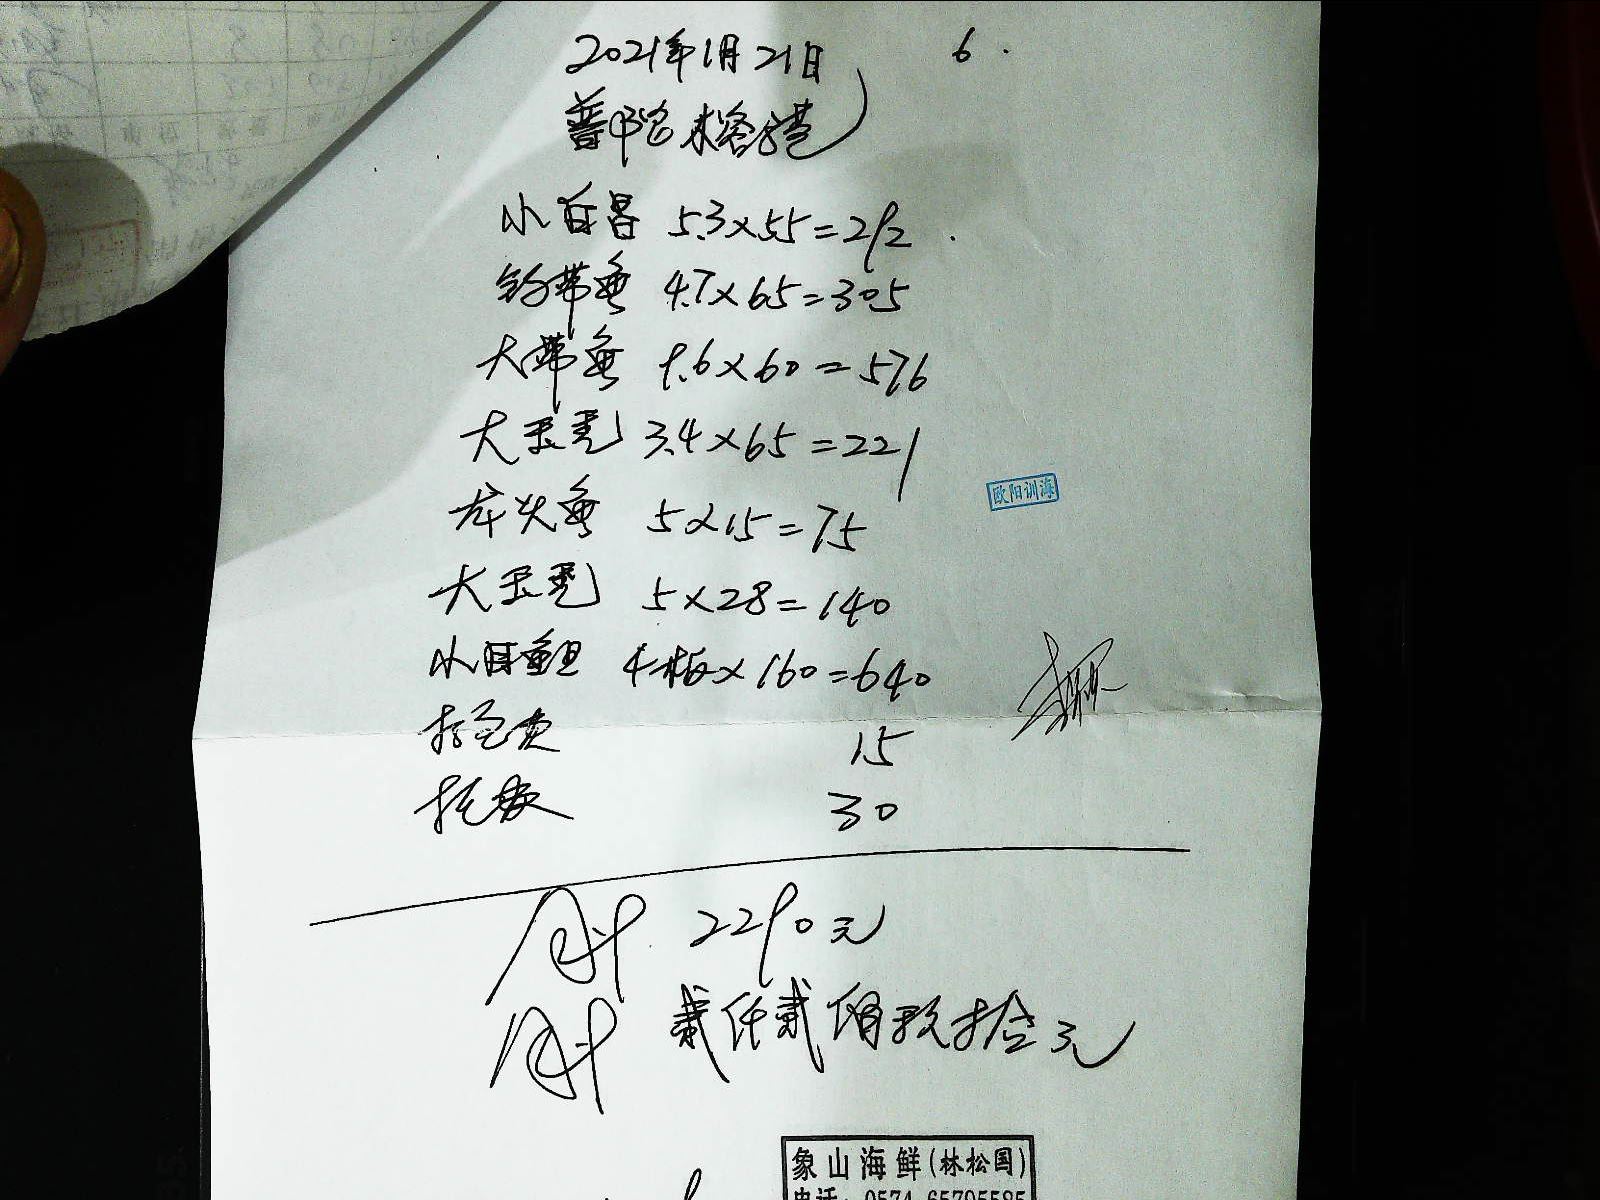 2021年1月21日 6.
普陀
小白昌 5.3×55=292.
钓带鱼 4.7×65=305
大带鱼 9.6×60=576
大玉秃 3.4×65=221
龙头鱼 5×15=75
大玉秃 5×28=140
小目鱼旦 4板×160=640
打包费 15
托费 30
合计 2290元
合计 贰仟贰佰玖拾元
欧阳训海
象山海鲜(林松国)
电话: 0574-65795585